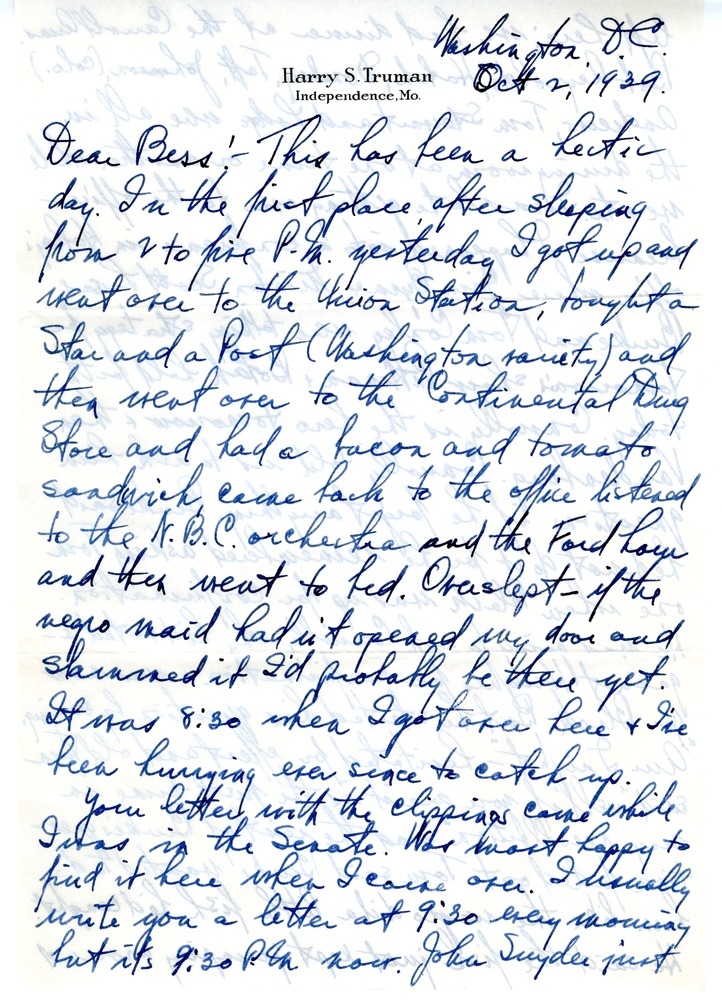 Washington, D.C.
Oct 2, 1939.
Harry S. Truman
Independence, Mo.
Dear Bess:- This has been a hectic
day. In the first place, after sleeping
from 2 to five P.M. yesterday I got up and
went over to the Union Station, bought a
Star and a Post (Washington variety) and
then went over to the Continental Drug
Store and had a bacon and tomato
sandwich, came back to the office listened
to the N.B.C. orchestra and the Ford hour
and then went to bed. Overslept - if the
negro maid hadn't opened my door and
slammed it I'd probably be there yet.
It was 8:30 when I got over here & I've
been hurrying ever since to catch up.
Your letter with the clippings came while
I was in the Senate. Was most happy to
find it here when I came over. I usually
write you a letter at 9:30 every morning
but it's 9:30 P.M. now. John Snyder just